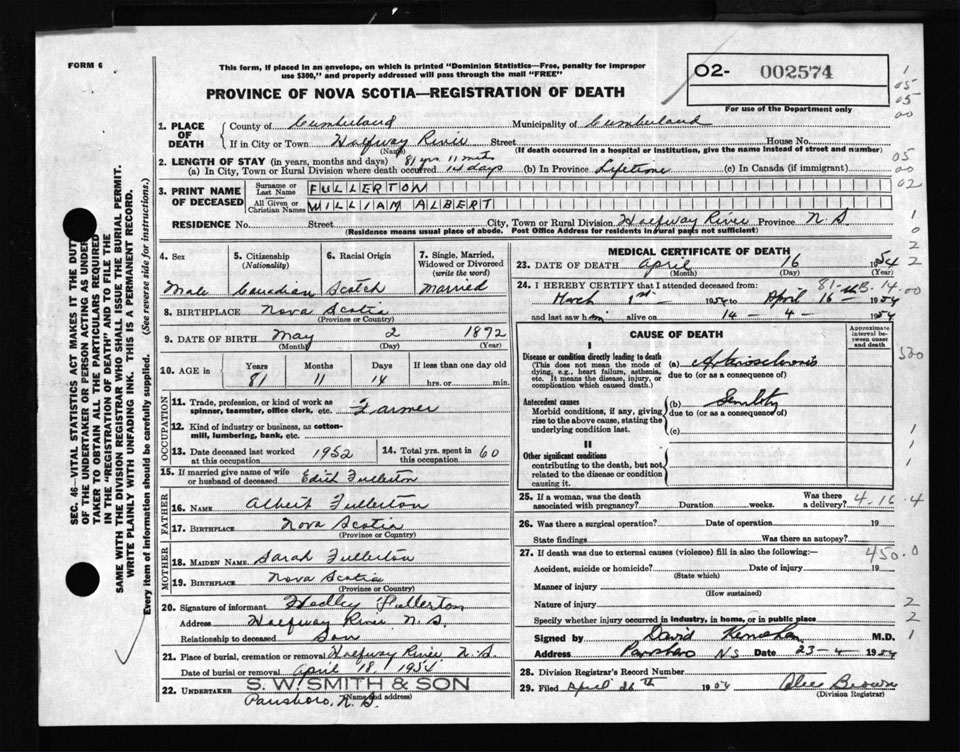 FORM 6
This form, if placed in an envelope, on which is printed "Dominion Statistics—Free, penalty for improper
use $300," and properly addressed will pass through the mail "FREE"
O2- 002574
PROVINCE OF NOVA SCOTIA—REGISTRATION OF DEATH
For use of the Department only
1. PLACE OF DEATH
County of Cumberland Municipality of Cumberland
If in City or Town Halfway River Street House No.
(Name) (If death occurred in a hospital or institution, give the name instead of street and number)
2. LENGTH OF STAY (in years, months and days) 81 yrs 11 mths
(a) In City, Town or Rural Division where death occurred 14 days (b) In Province Lifetime (c) In Canada (if immigrant)
3. PRINT NAME OF DECEASED
Surname or Last Name FULLERTON
All Given or Christian Names WILLIAM ALBERT
RESIDENCE No. Street City, Town or Rural Division Halfway River Province N.S.
(Residence means usual place of abode. Post Office Address for residents in rural parts not sufficient)
4. Sex
Male
5. Citizenship
(Nationality)
Canadian
6. Racial Origin
Scotch
7. Single, Married,
Widowed or Divorced
(write the word)
Married
8. BIRTHPLACE Nova Scotia
(Province or Country)
9. DATE OF BIRTH May 2 1872
(Month) (Day) (Year)
10. AGE in
Years Months Days If less than one day old
81 11 14 hrs. or min.
OCCUPATION
11. Trade, profession, or kind of work as
spinner, teamster, office clerk, etc. Farmer
12. Kind of industry or business, as cotton-
mill, lumbering, bank, etc.
13. Date deceased last worked
at this occupation 1952
14. Total yrs. spent in
this occupation 60
15. If married give name of wife
or husband of deceased Edith Fullerton
FATHER
16. NAME Albert Fullerton
17. BIRTHPLACE Nova Scotia
(Province or Country)
MOTHER
18. MAIDEN NAME Sarah Fullerton
19. BIRTHPLACE Nova Scotia
(Province or Country)
20. Signature of informant Hedley Fullerton
Address Halfway River N.S.
Relationship to deceased Son
21. Place of burial, cremation or removal Halfway River N.S.
Date of burial or removal April 18 1954
22. UNDERTAKER S. W. SMITH & SON
(Name and address)
Parrsboro, N.S.
MEDICAL CERTIFICATE OF DEATH
23. DATE OF DEATH April 16 1954
(Month) (Day) (Year)
24. I HEREBY CERTIFY that I attended deceased from:
March 1st 1954 to April 16 1954
and last saw him alive on 14 - 4 - 1954
CAUSE OF DEATH
Approximate interval between onset and death
I
Disease or condition directly leading to death
(This does not mean the mode of
dying, e.g., heart failure, asthenia,
etc. It means the disease, injury, or
complication which caused death.)
(a) Arteriosclerosis
due to (or as a consequence of)
Antecedent causes
Morbid conditions, if any, giving
rise to the above cause, stating the
underlying condition last.
(b) Senility
due to (or as a consequence of)
(c)
II
Other significant conditions
contributing to the death, but not
related to the disease or condition
causing it.
25. If a woman, was the death
associated with pregnancy? Duration weeks. Was there a delivery?
4.16.4
26. Was there a surgical operation? Date of operation 19
State findings Was there an autopsy?
27. If death was due to external causes (violence) fill in also the following:—
450.0
Accident, suicide or homicide? Date of injury 19
(State which)
Manner of injury
(How sustained)
Nature of injury
Specify whether injury occurred in industry, in home, or in public place
Signed by David M.D.
Address Parrsboro NS Date 23-4- 1954
28. Division Registrar's Record Number
29. Filed April 26th 1954 Alice Brown
(Division Registrar)
SEC. 46—VITAL STATISTICS ACT MAKES IT THE DUTY
OF THE UNDERTAKER OR PERSON ACTING AS UNDER-
TAKER TO OBTAIN ALL THE PARTICULARS REQUIRED
IN THE "REGISTRATION OF DEATH" AND TO FILE THE
SAME WITH THE DIVISION REGISTRAR WHO SHALL ISSUE THE BURIAL PERMIT.
WRITE PLAINLY WITH UNFADING INK. THIS IS A PERMANENT RECORD.
Every item of information should be carefully supplied. (See reverse side for instructions.)